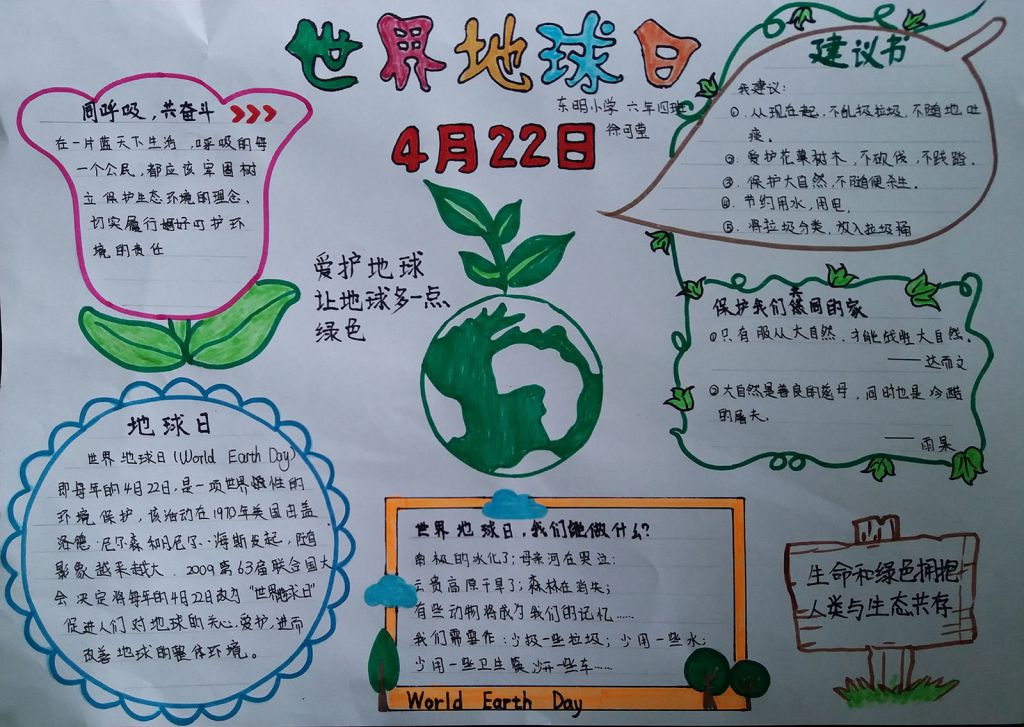 世界地球日
东明小学 六年四班
4月22日
同呼吸，共奋斗
在一片蓝天下生活，呼吸的每
一个公民，都应该牢固树
立保护生态环境的理念，
切实履行 呵护环
境的责任
建议书
我建议：
①．从现在起，不乱扔垃圾，不随地吐
痰。
②．爱护花草树木，不砍伐，不践踏。
③．保护大自然，不随便杀生。
④．节约用水，用电。
⑤．将垃圾分类，放入垃圾桶
爱护地球
让地球多一点
绿色
保护我们共同的家
①只有服从大自然，才能战胜大自然。
——达尔文
②大自然是善良的慈母，同时也是冷酷
的屠夫。
——雨果
地球日
世界地球日(World Earth Day)
即每年的4月22日，是一项世界性的
环境保护，该活动在1970年美国由盖
洛德·尼尔森和丹尼尔·海斯发起，随
影象越来越大．2009第63届联合国大
会决定将每年的4月22日改为"世界地球日"
促进人们对地球的关心，爱护，进而
改善地球的整体环境。
世界地球日，我们能做什么？
南极的冰化了；母亲河在哭泣；
云贵高原干旱了；森林在消失；
有些动物将成为我们的记忆……
我们需要作：少扔一些垃圾；少用一些水；
少用一些卫生筷 少开一些车……
World Earth Day
生命和绿色拥抱
人类与生态共存